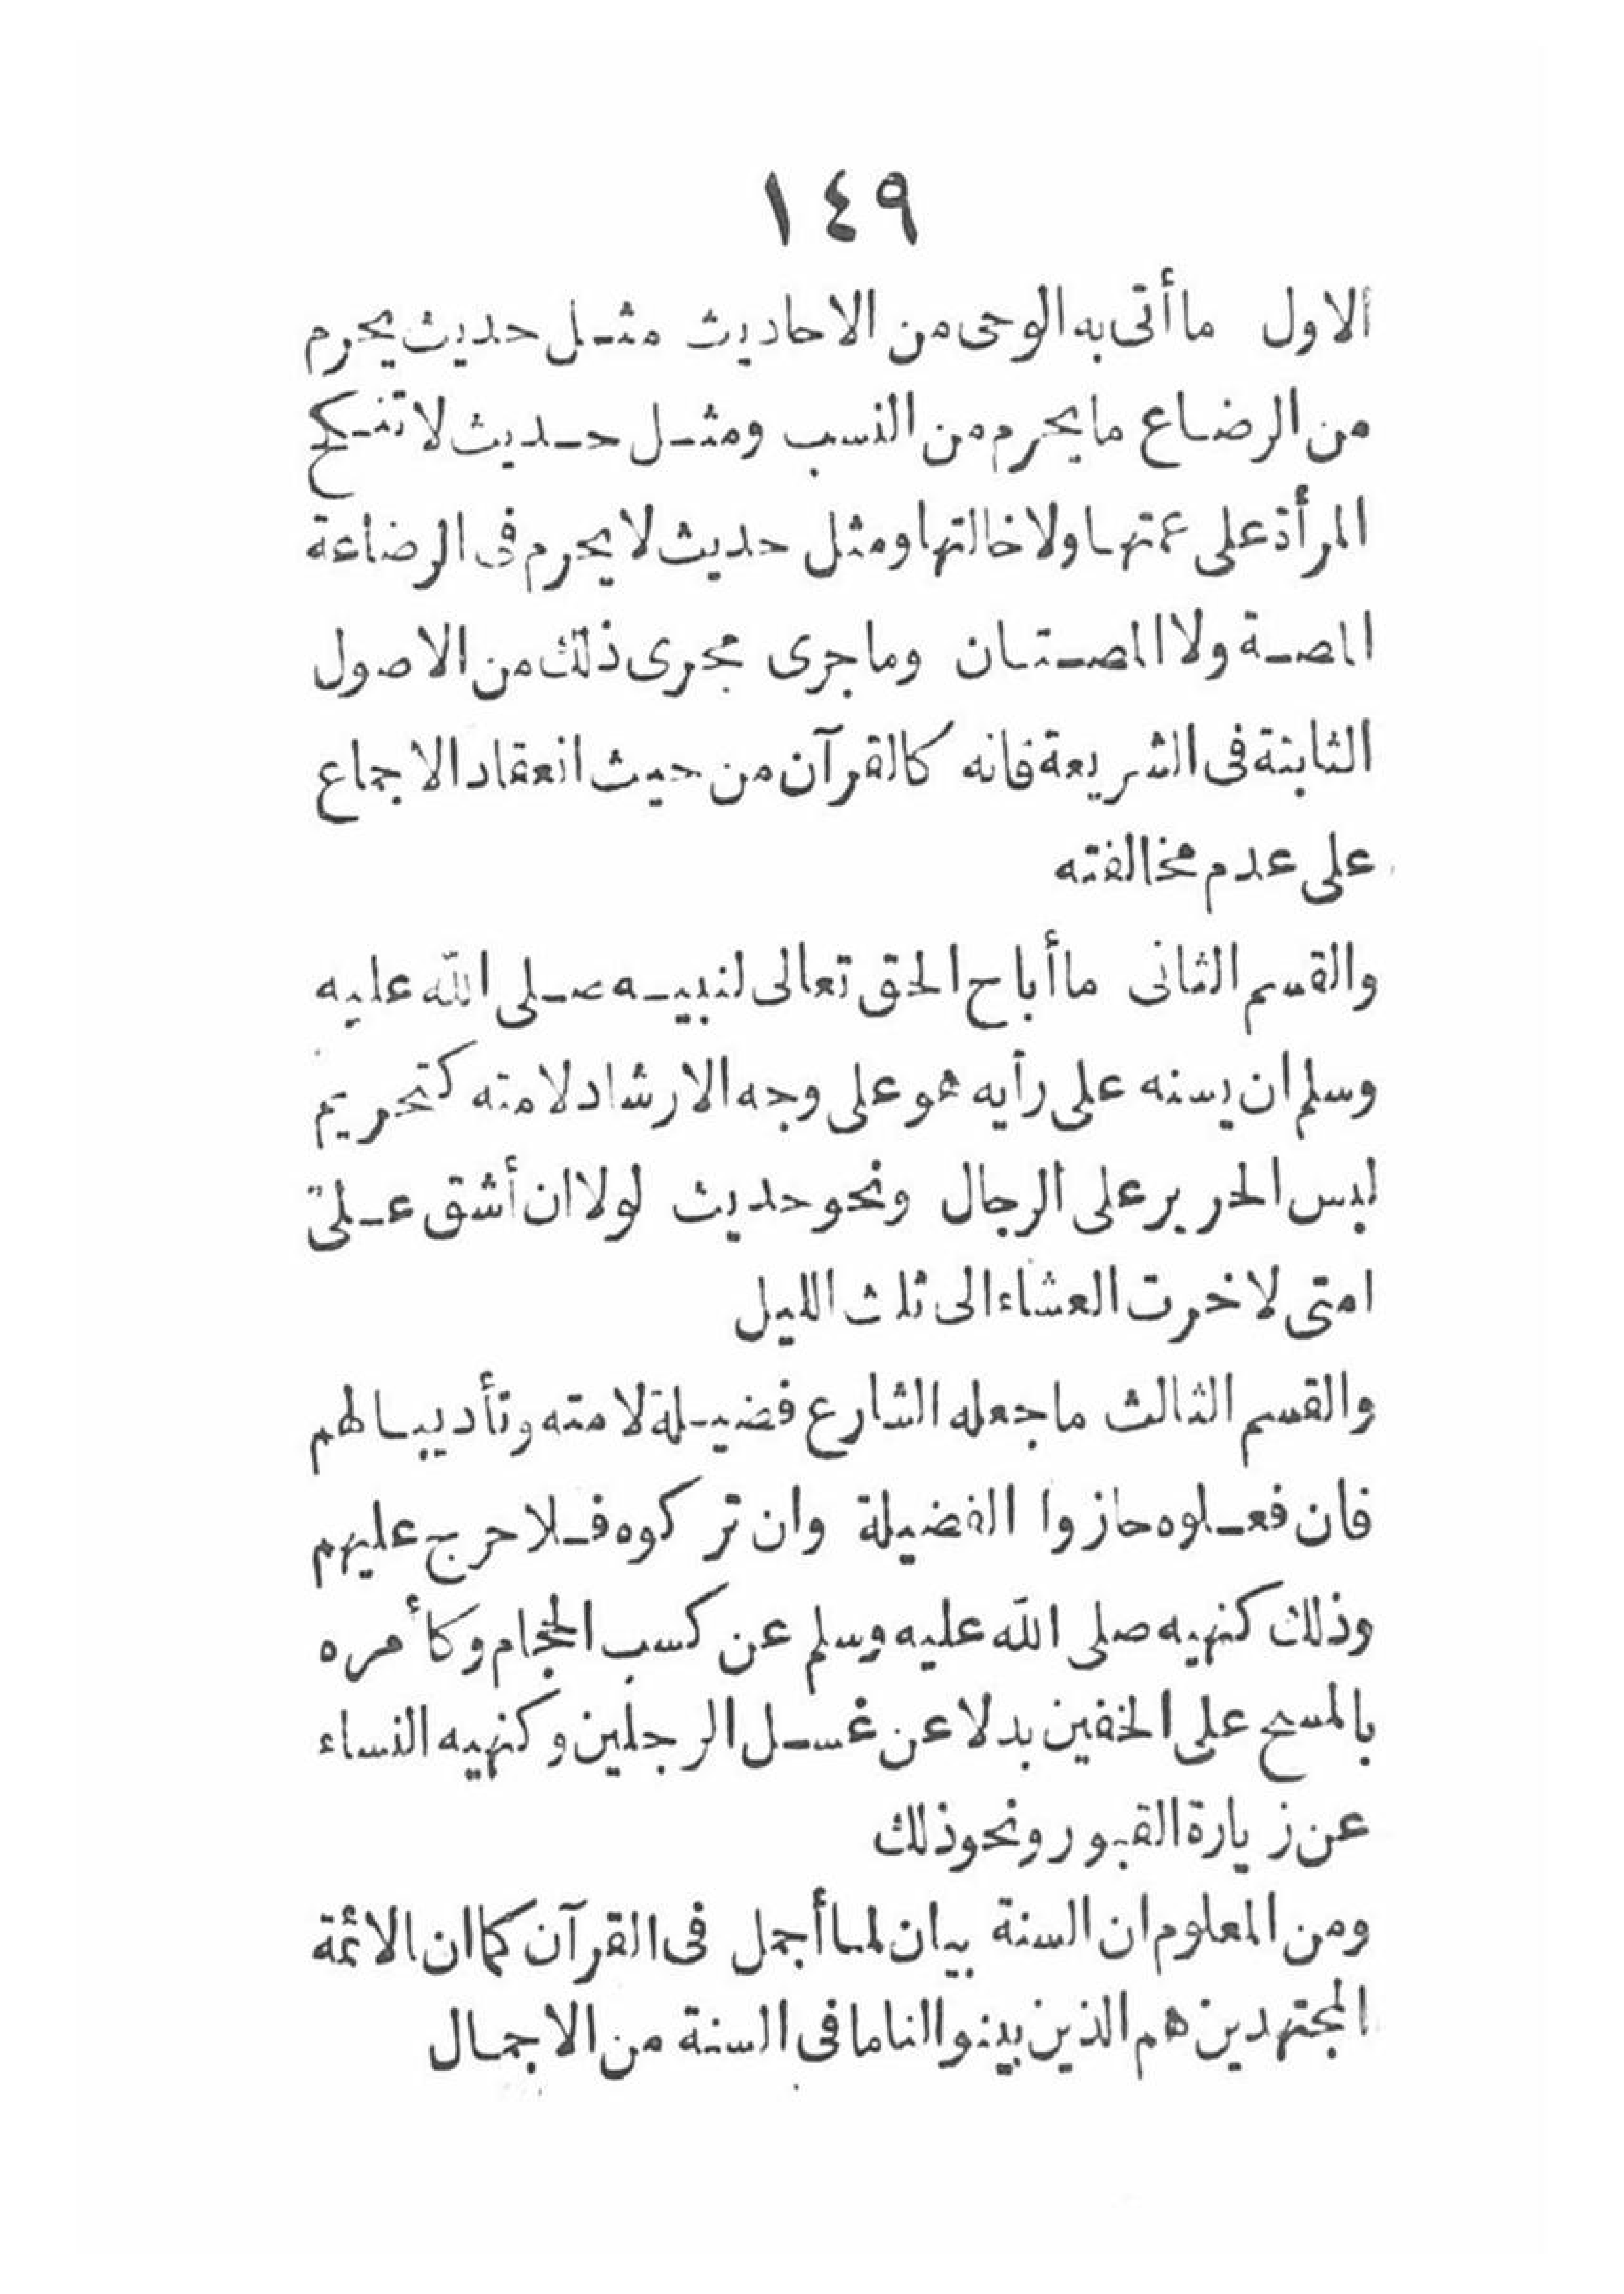 ١٤٩
الاول ما أتى به الوحى من الاحاديث مثل حديث يحرم
من الرضاع ما يحرم من النسب ومثل حديث لا تنكح
المرأة على عمتها ولا خالتها ومثل حديث لا يحرم فى الرضاعة
المصة ولا المصتان وما جرى مجرى ذلك من الاصول
الثابتة فى الشريعة فانه كالقرآن من حيث انعقاد الاجماع
على عدم مخالفته
والقسم الثانى ما أباح الحق تعالى لنبيه صلى الله عليه
وسلم ان يسنه على رأيه هو على وجه الارشاد لامته كتحريم
لبس الحرير على الرجال ونحو حديث لولا ان أشق على
امتى لاخرت العشاء الى ثلث الليل
والقسم الثالث ما جعله الشارع فضيلة لامته وتأديبا لهم
فان فعلوه حازوا الفضيلة وان تركوه فلا حرج عليهم
وذلك كنهيه صلى الله عليه وسلم عن كسب الحجام وكأمره
بالمسح على الخفين بدلا عن غسل الرجلين وكنهيه النساء
عن زيارة القبور ونحو ذلك
ومن المعلوم ان السنة بيان لما أجمل فى القرآن كما ان الائمة
المجتهدين هم الذين بينوا لنا ما فى السنة من الاجمال